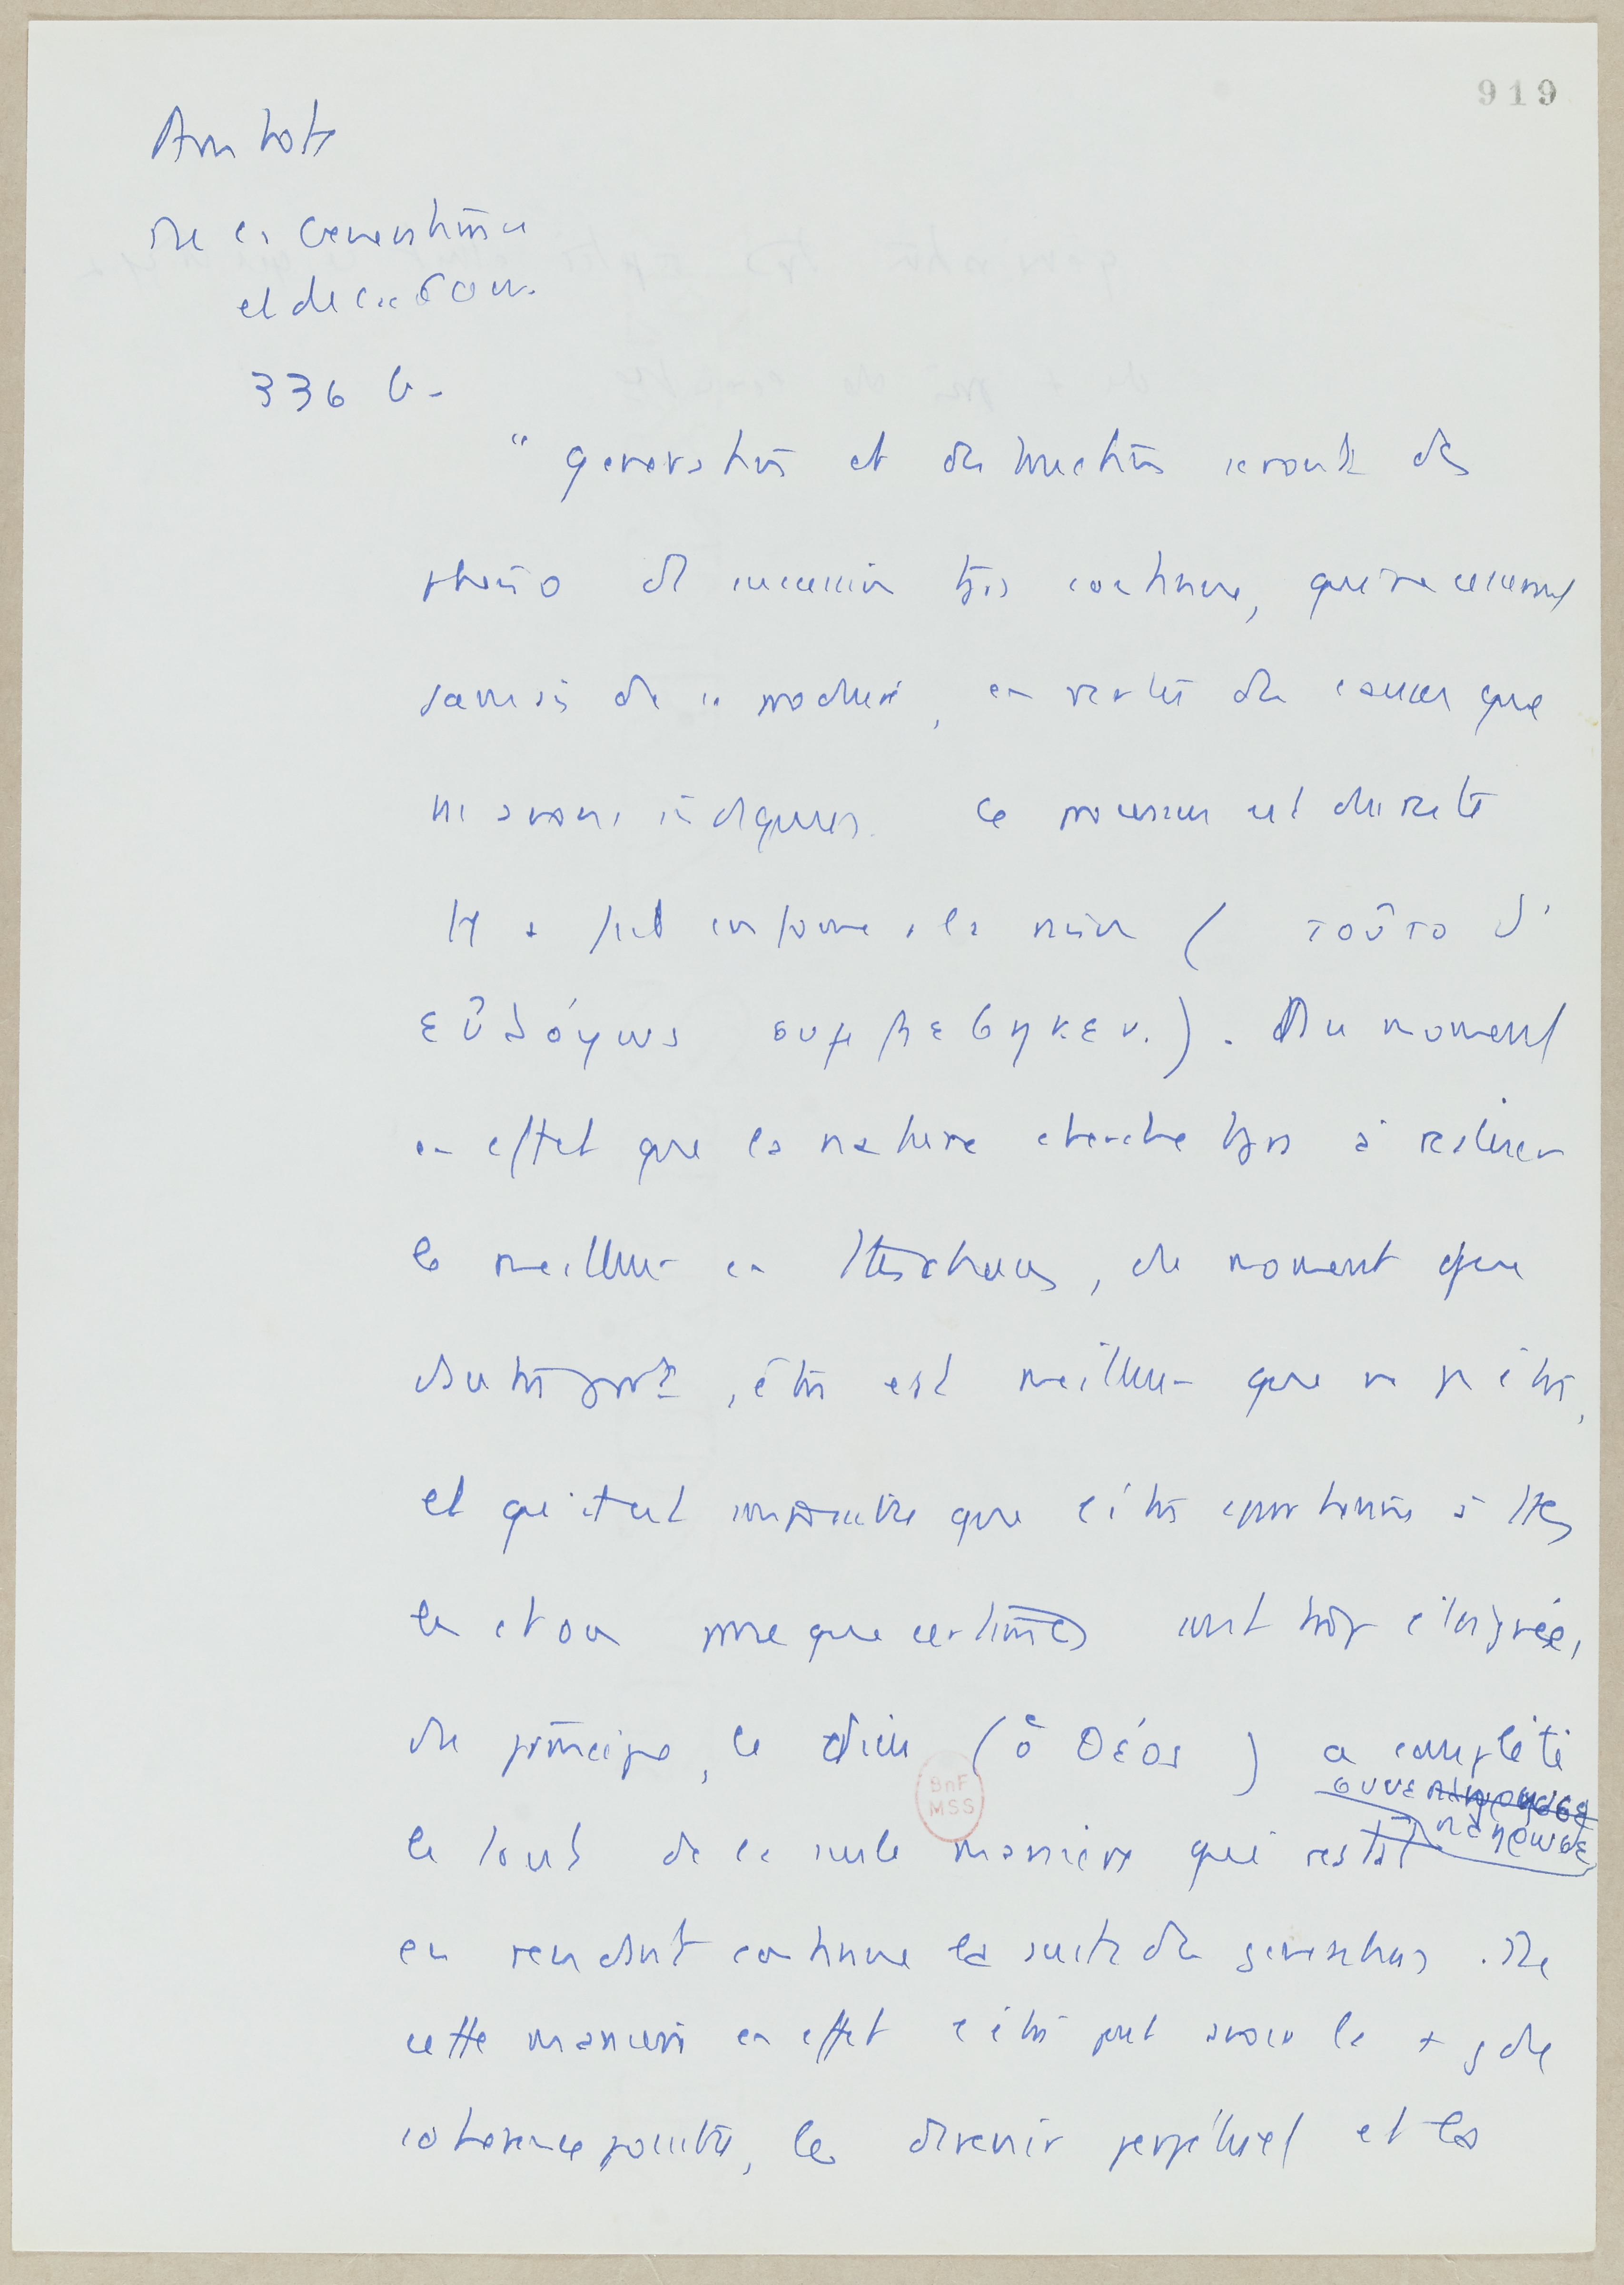 919
Aristote
De la Generation
et de la Corr.
336 b.
" generation et destruction seront des
pheno de succession tjrs continue, qui ne cesseront
jamais de se produire, en vertu des causes que
ns avons indiquées. Ce processus est du reste
tt à fait conforme à la raison ( τοῦτο δ'
εὐλόγως συμβεβηκεν.). Du moment
en effet que la nature cherche tjrs à realiser
le meilleur en ttes choses, du moment que
d'autre part, être est meilleur que ne pas être,
et qu'il est impossible que l'être appartienne à ttes
les choses parce que certaines sont trop éloignées
du principe, le dieu (ὁ θέος) a complété
συνεπλήρωσε
le tout de la seule manière qui restait
en rendant continue la suite des generations. De
cette maniere en effet l'être peut avoir la + gde
coherence possible, le devenir perpétuel et la
BnF
MSS